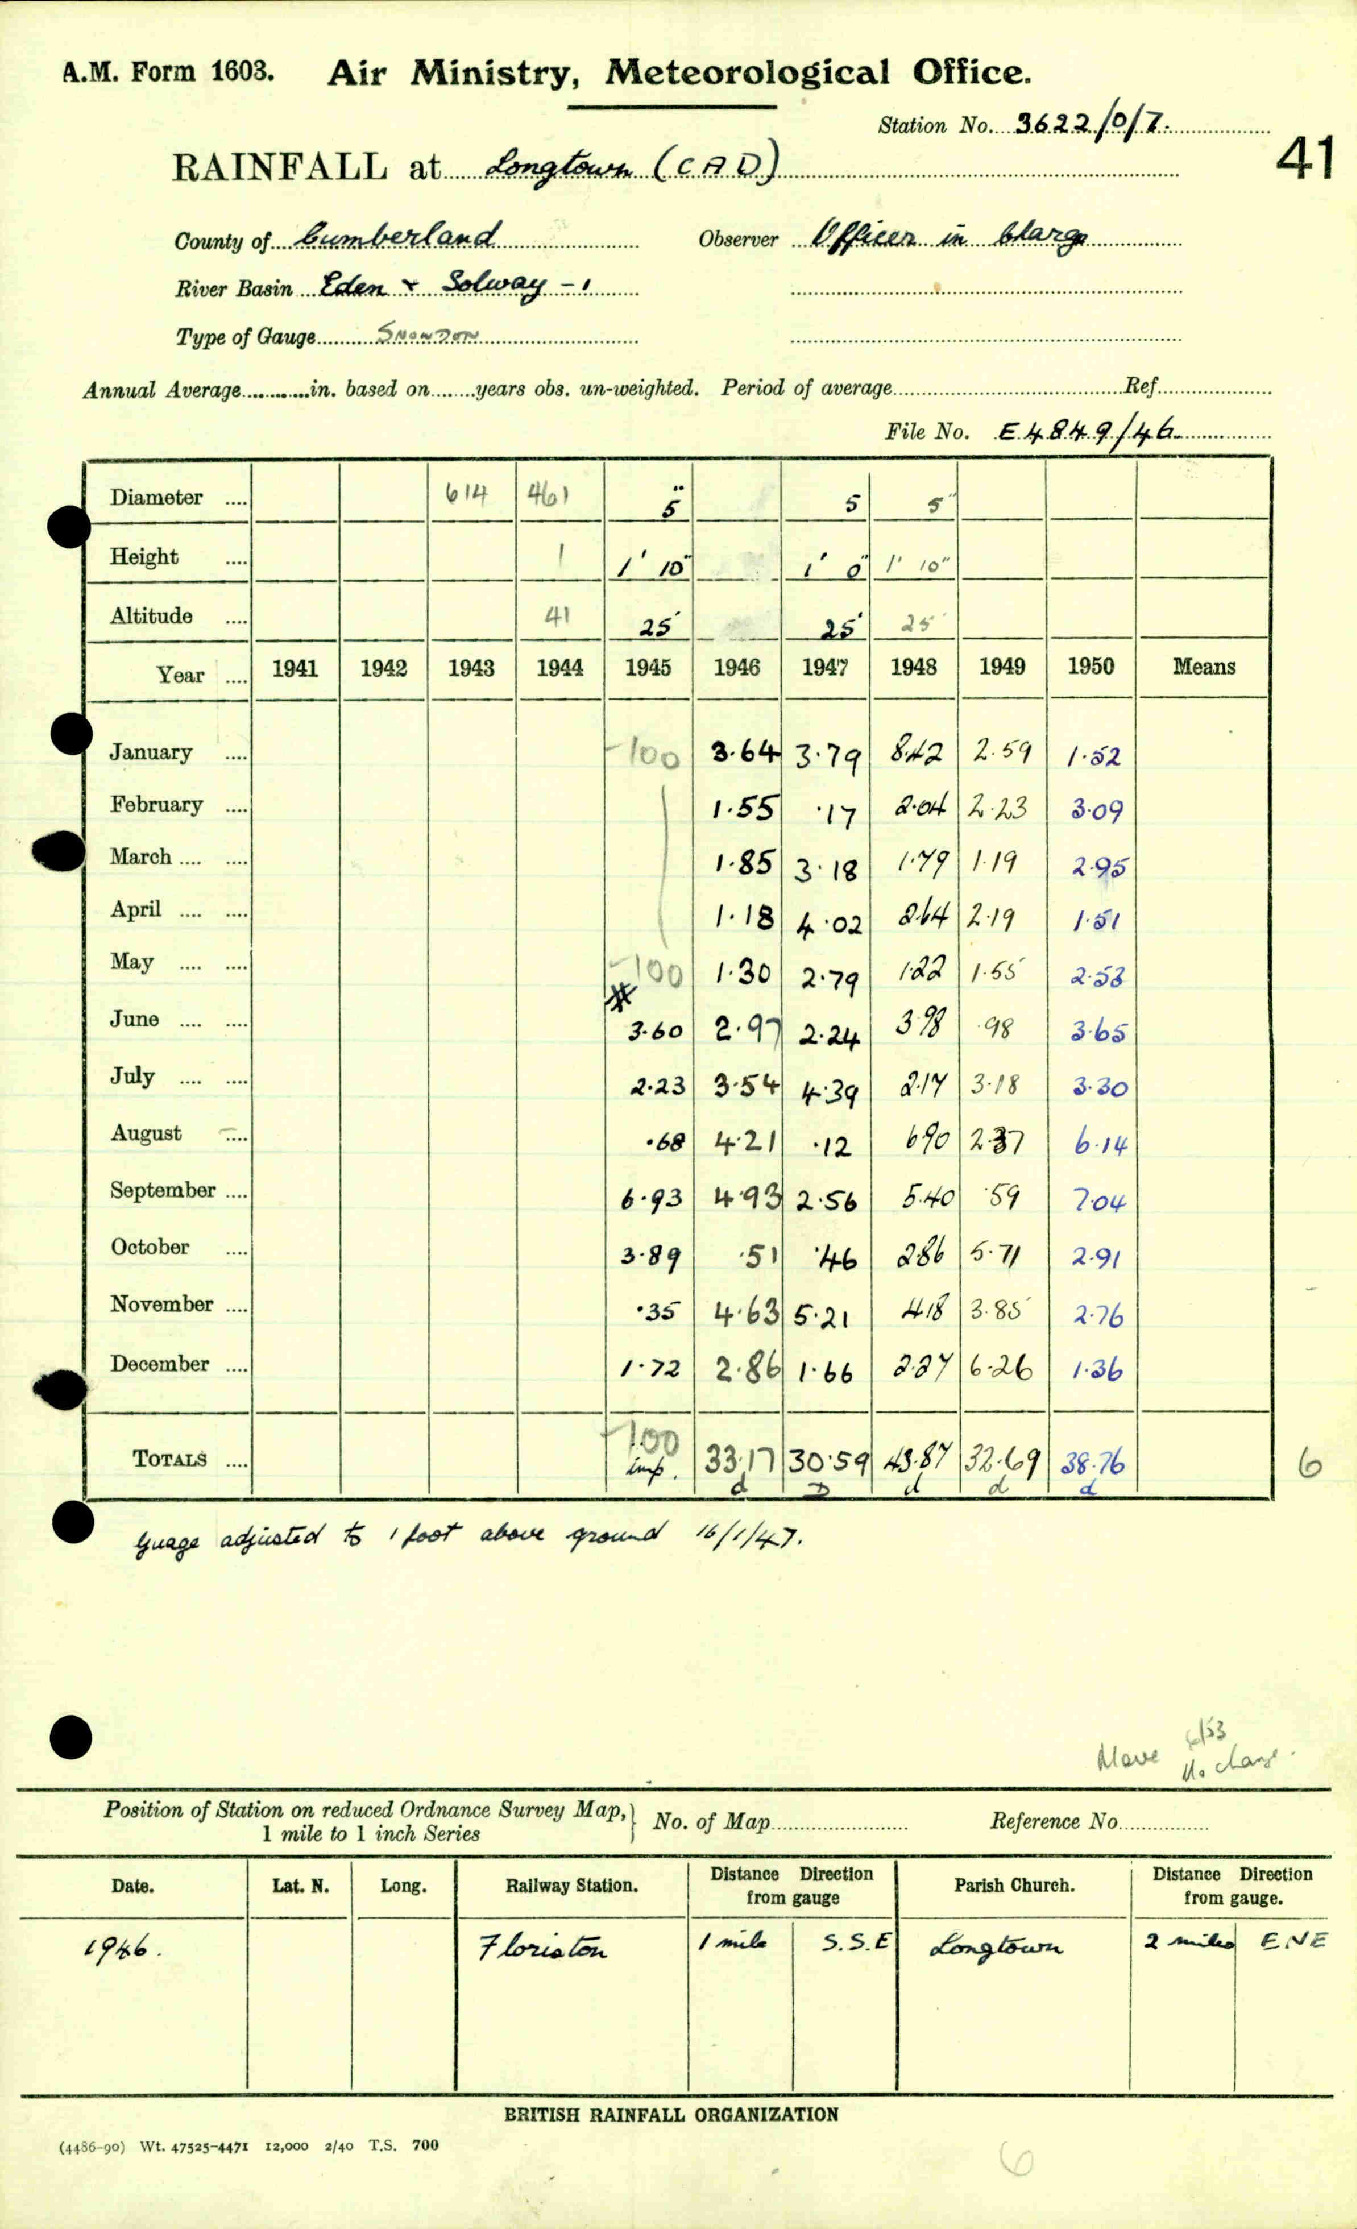 A.M. Form 1603. Air Ministry, Meteorological Office.
Station No. 3622/0/7.
41
RAINFALL at Longtown (CAD)
County of Cumberland Observer Officer in Charge
River Basin Eden + Solway -1
Type of Gauge SNOWDON
Annual Average in. based on years obs. un-weighted. Period of average Ref.
File No. E4849/46
Diameter .... 614 461 5" 5 5"
Height .... 1 1' 10" 1' 0" 1' 10"
Altitude .... 41 25' 25' 25'
Year .... 1941 1942 1943 1944 1945 1946 1947 1948 1949 1950 Means
January .... -100 3.64 3.79 8.42 2.59 1.52
February .... 1.55 .17 2.04 2.23 3.09
March .... .... 1.85 3.18 1.79 1.19 2.95
April .... .... 1.18 4.02 2.64 2.19 1.51
May .... .... -100 1.30 2.79 1.22 1.55 2.53
June .... .... 3.60 2.97 2.24 3.98 .98 3.65
July .... .... 2.23 3.54 4.39 2.17 3.18 3.30
August .... .68 4.21 .12 6.90 2.37 6.14
September .... 6.93 4.93 2.56 5.40 .59 7.04
October .... 3.89 .51 .46 2.86 5.71 2.91
November .... .35 4.63 5.21 4.18 3.85 2.76
December .... 1.72 2.86 1.66 2.27 6.26 1.36
TOTALS .... -100 imp. 33.17 30.59 43.87 32.69 38.76 6
d D d d d
Guage adjusted to 1 foot above ground 16/1/47.
6/53
Move No change.
Position of Station on reduced Ordnance Survey Map, No. of Map Reference No
1 mile to 1 inch Series
Date. Lat. N. Long. Railway Station. Distance Direction from gauge Parish Church. Distance Direction from gauge.
1946. Floriston 1 mile S.S.E Longtown 2 miles ENE
BRITISH RAINFALL ORGANIZATION
(4486-90) Wt. 47525-4471 12,000 2/40 T.S. 700
6